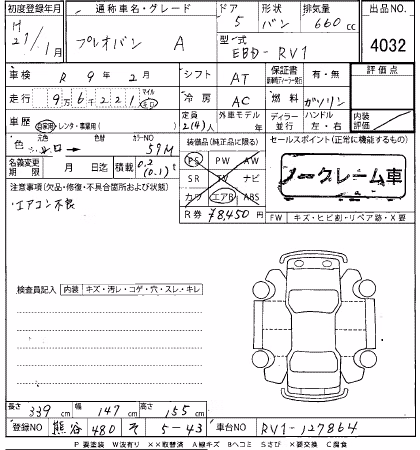 初度登録年月 通称車名・グレード ドア 形状 排気量 出品NO
H21/1月 プレオバン A 5 バン 660cc 4032
型式 EBD-RV1
車検 R 9年 2月 シフト AT 保証書 有・無 評価点
走行 9万6221 マイル km 冷房 AC 燃料 ガソリン
車歴 自家用・レンタ・事業用( ) 定員 2(4)人 外車モデル 年 ディーラー 並行 ハンドル 左・右 内装評価
色 元色 カラーNO 59M 装備品(純正品に限る) セールスポイント(正常に機能するもの)
シロ → PS PW AW
名義変更期限 月 日迄 積載 0.2(0.1)t SR TV ナビ ノークレーム車
注意事項(欠品・修復・不具合箇所および状態) カワ エアB ABS
・エアコン不良 R券 ¥8450 FW キズ・ヒビ割・リペア跡・X要
検査員記入 内装 キズ・汚レ・コゲ・穴・スレ・キレ
長さ 339cm 幅 147cm 高さ 155cm
登録NO 熊谷 480 そ 5-43 車台NO RV1-127864
P要塗装 W波有り XX取替済 A線キズ Bヘコミ Sさび X要交換 C腐食